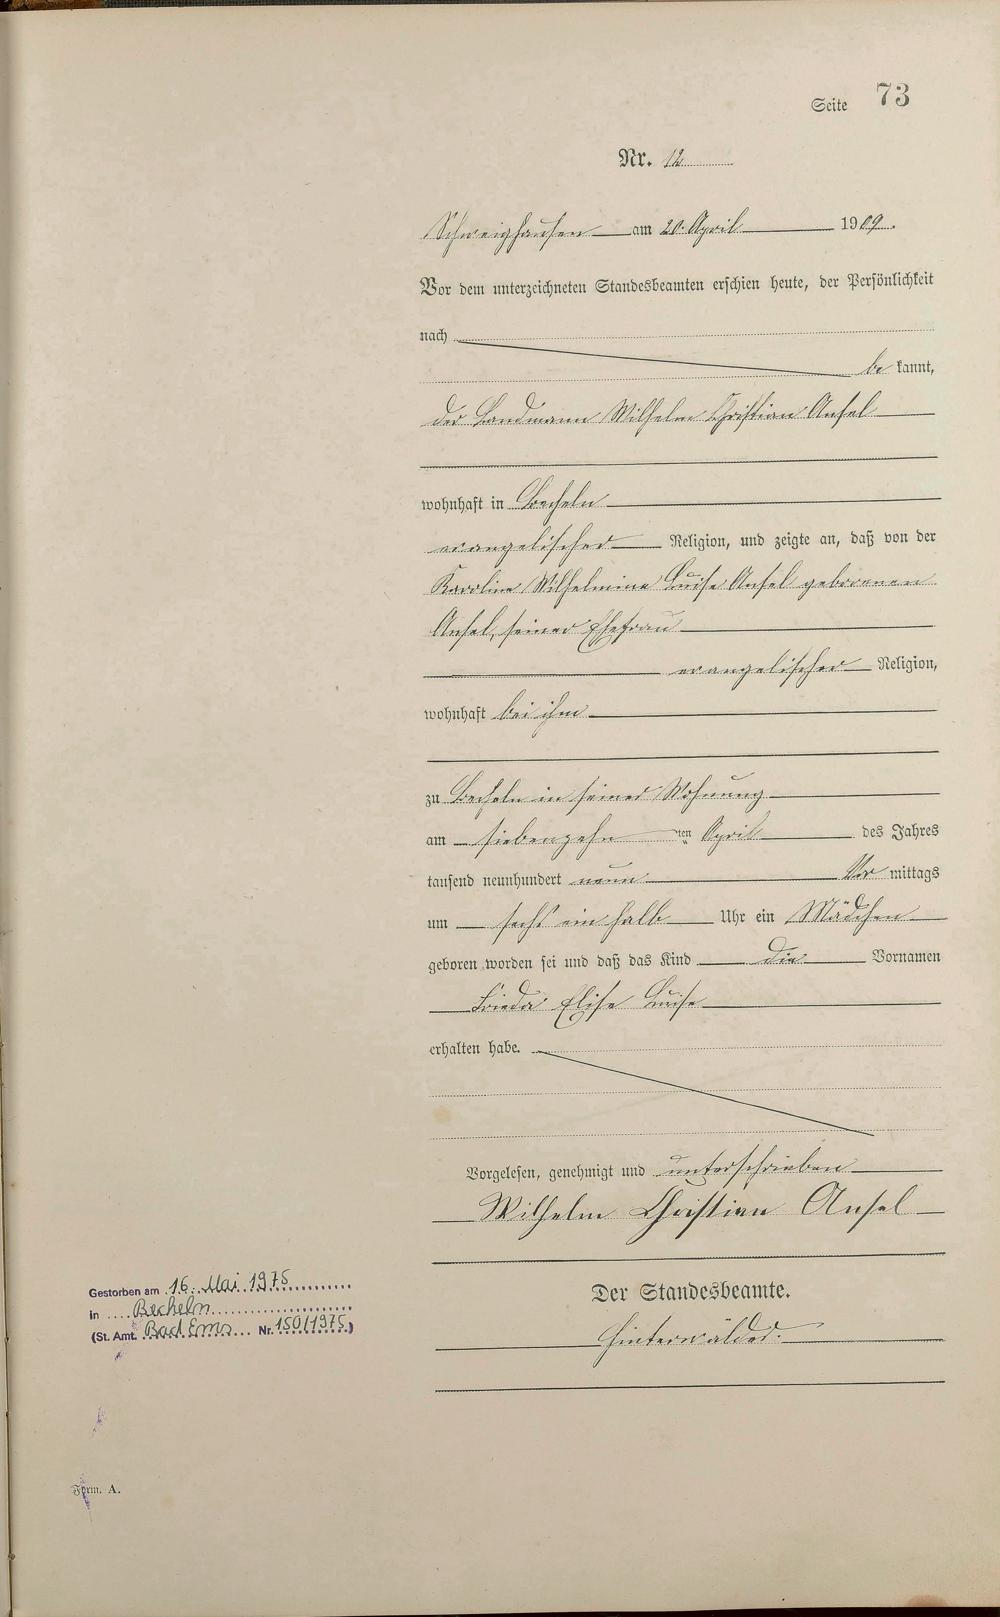 Seite 73
Nr. 12
Schweighausen am 20. April 1909.
Vor dem unterzeichneten Standesbeamten erschien heute, der Persönlichkeit
nach
be kannt,
der Landmann Wilhelm Christian Ansel
wohnhaft in Becheln
evangelischer Religion, und zeigte an, daß von der
Karoline Wilhelmine Luise Ansel geborenen
Ansel, seiner Ehefrau
evangelischer Religion,
wohnhaft bei ihm
zu Becheln in seiner Wohnung
am siebenzehn ten April des Jahres
tausend neunhundert neun Vor mittags
um sechs ein halb Uhr ein Mädchen
geboren worden sei und daß das Kind die Vornamen
Frieda Elise Luise
erhalten habe.
Vorgelesen, genehmigt und unterschrieben
Wilhelm Christian Ansel
Der Standesbeamte.
Hinterwälder.
Gestorben am 16. Mai 1975
in Becheln
(St. Amt. Bad Ems Nr. 150/1975)
Form. A.